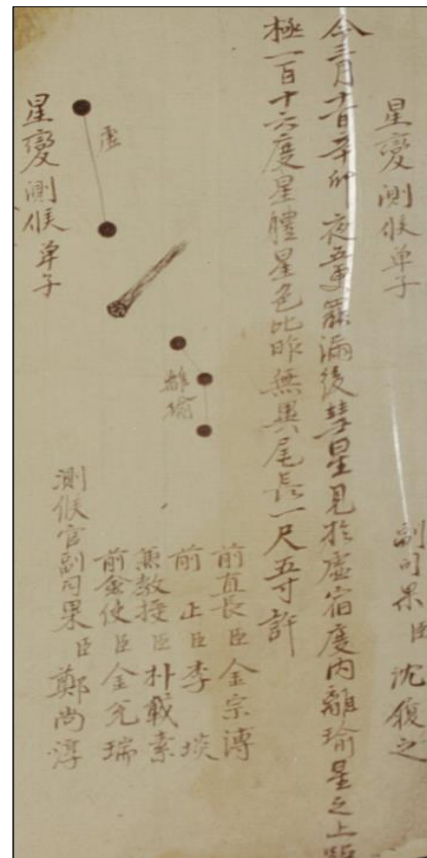 星變測候单子
副司果臣沈履之
今三月十一日辛卯夜五更罷漏後彗星見於虛宿度内離瑜星之上距
極一百十六度星軆星色比昨無異尾長一尺五寸許
前直長臣金宗溥
前正臣李埮
兼教授臣朴載素
前僉使臣金兌瑞
測候官副司果臣鄭尚淳
離瑜
虛
星變測候单子